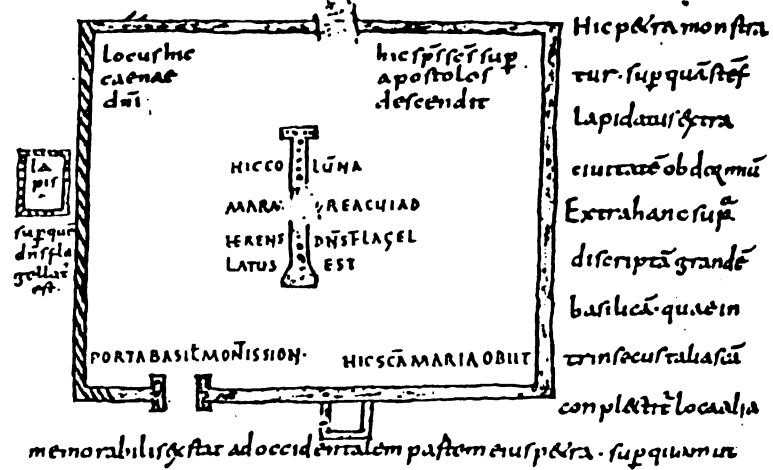 locus hic
caenae
dn̄i
hic sp̄s sc̄s sup̄
apostolos
descendit
la
pis
sup̄ quē
dn̄s fla
gellat̄
est.
HIC CO LŪNA
MAR REA CUI AD
HERENS DN̄S FLAGEL
LATUS EST
PORTA BASIL̄ MONT̄ISSION·
HIC SC̄A MARIA OBIIT
Hic petra monstra
tur· sup̄ quā stef̄
lapidatus extra
ciuitatē
Extra hanc supᵃ
discriptā grandē
basilicā· quae in
trinsecus talia scā
conplectit̄ loca alia
memorabilis extat ad occidentalem partem eius petra · sup̄ quam ut